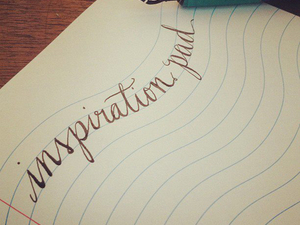 inspiration pad